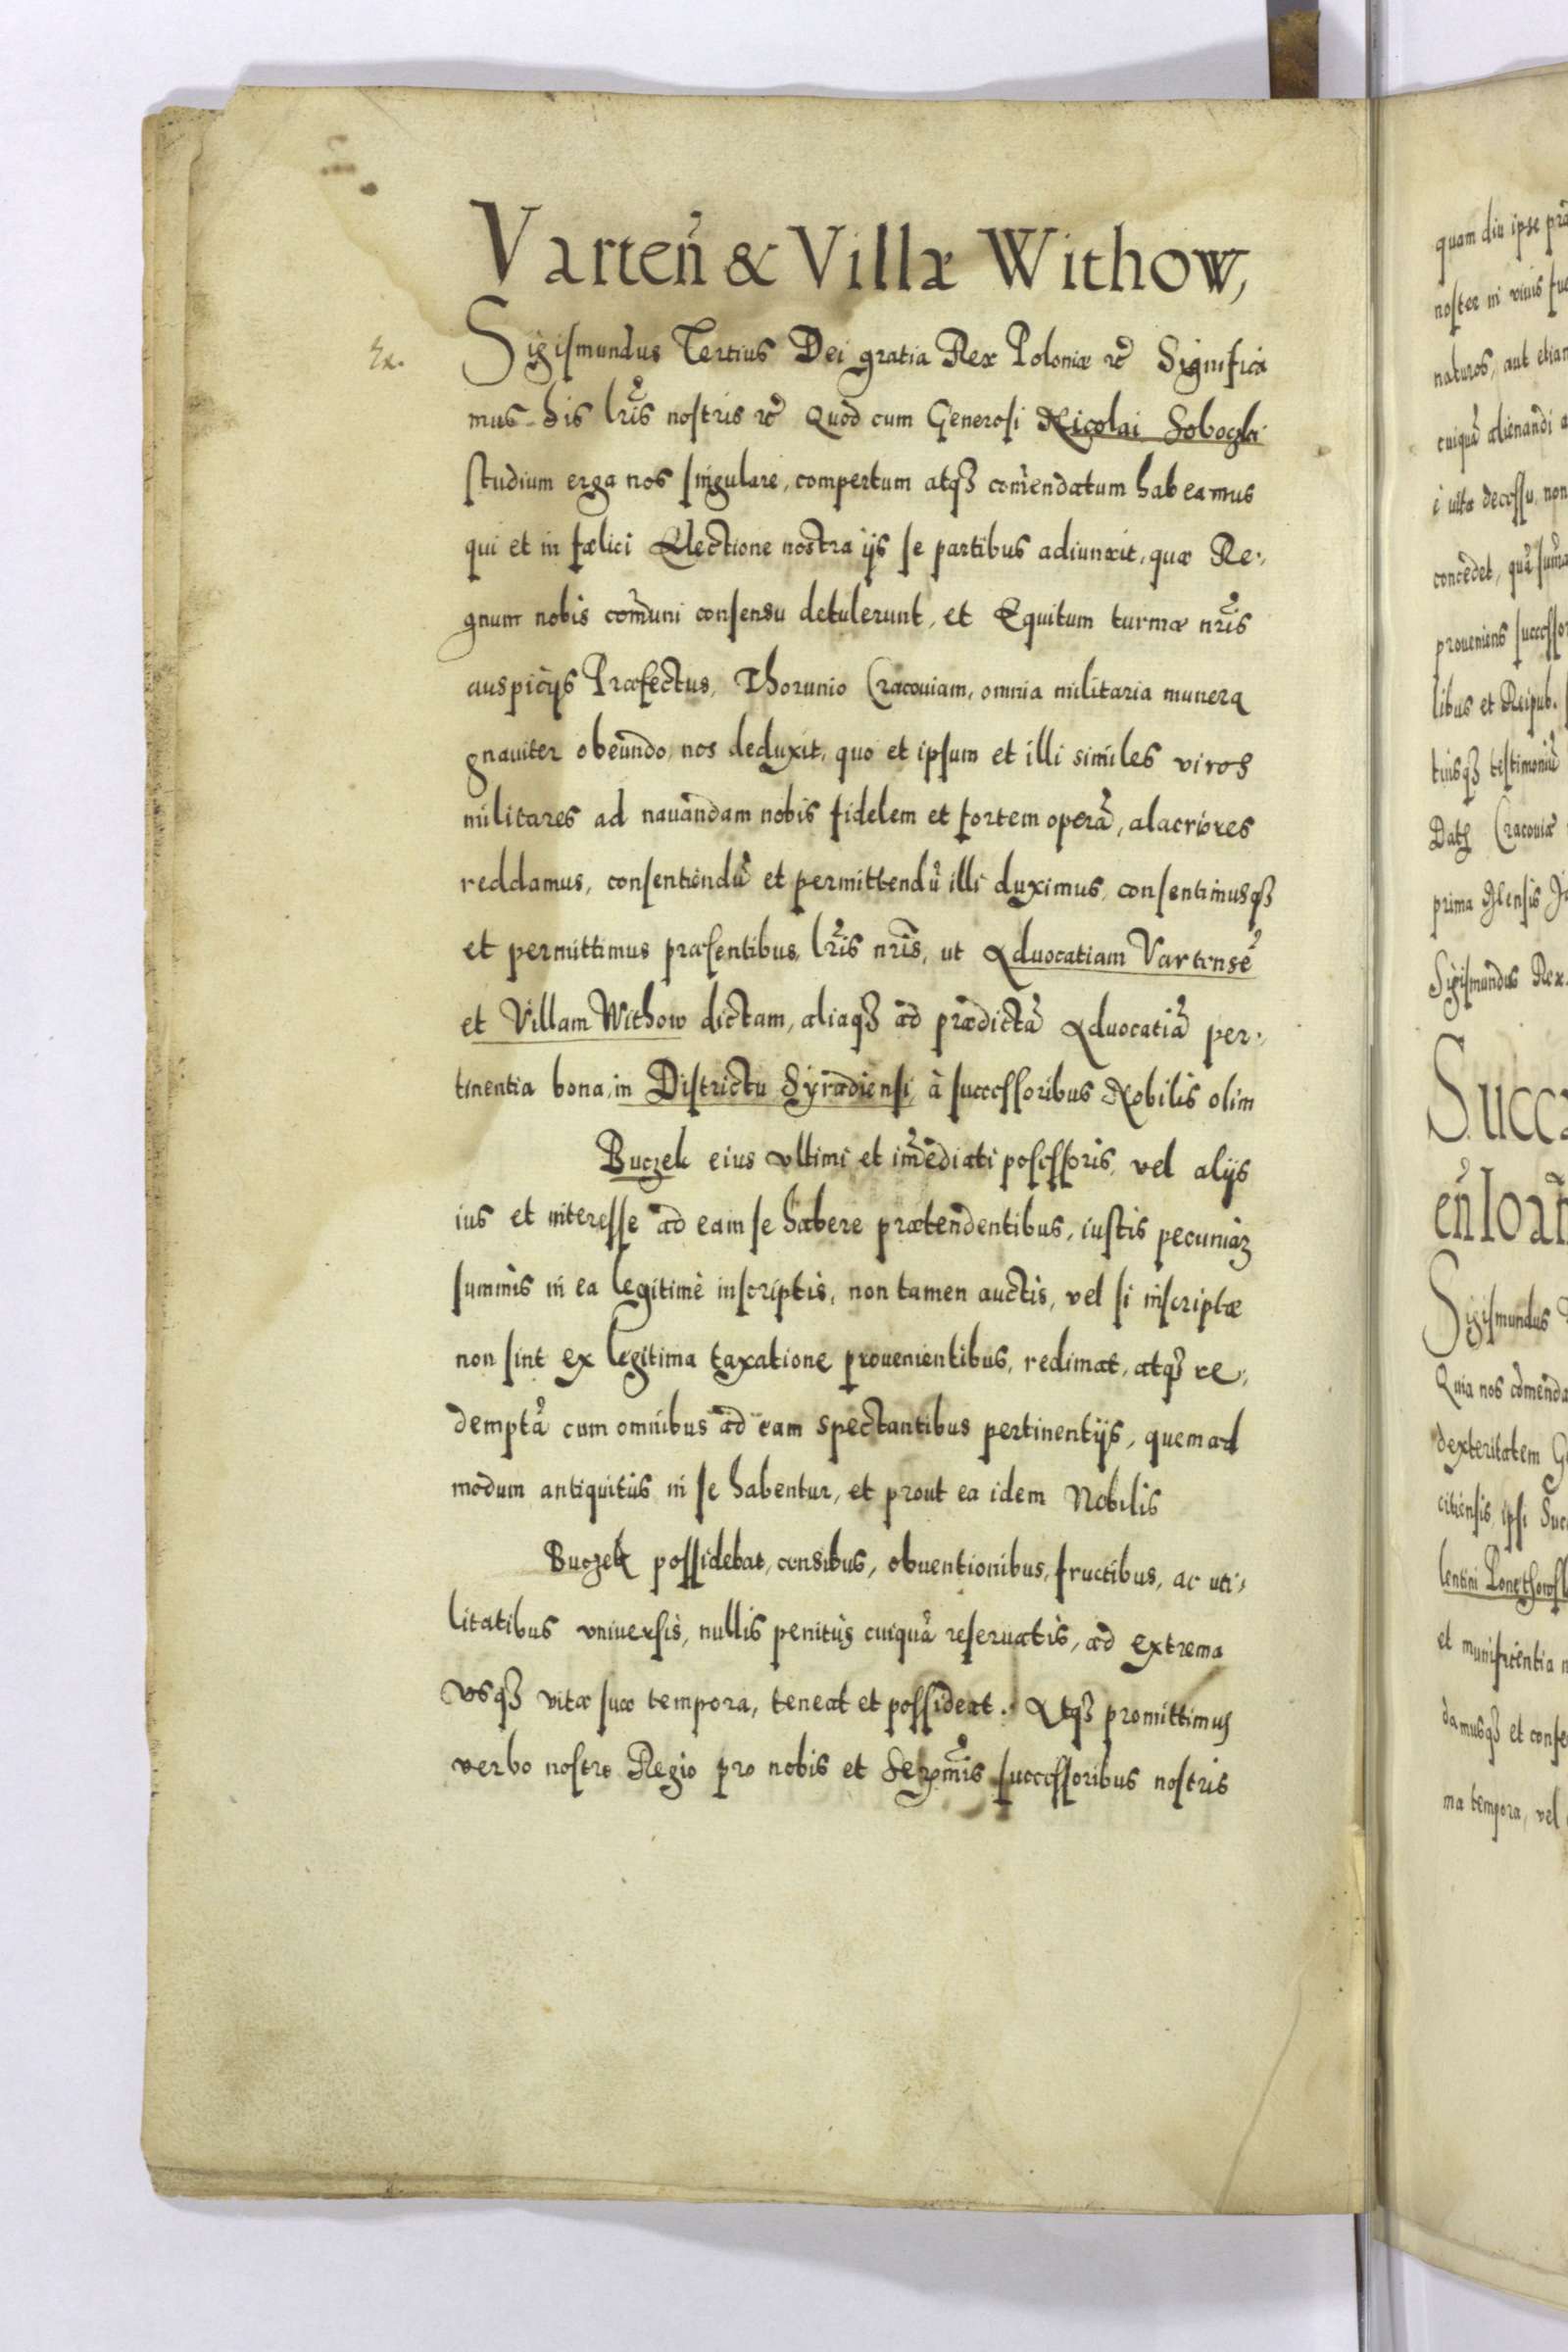 Varteñ & Villæ Withow,
Ex.
Sigismundus Tertius Dei gratia Rex Poloniæ etc̃ Significa
mus his lrĩs nostris etc̃ Quod cum Generosi Nicolai
studium erga nos singulare, compertum atqȝ com̃endatum habeamus
qui et in fœlici Electione nostra ijs se partibus adiunxit, quæ Re,
gnum nobis com̃uni consensu detulerunt, et Equitum turmæ nrĩs
auspicijs Præfectus, Thorunio Cracouiam, omnia militaria munera
gnauiter obeundo, nos deduxit, quo et ipsum et illi similes viros
militares ad nauandam nobis fidelem et fortem operã, alacriores
reddamus, consentiendũ et permittendũ illi duximus, consentimusqȝ
et permittimus præsentibus, lrĩs nrĩs, ut Aduocatiam Vartensẽ
et Villam Withow dictam, aliaqȝ ad prædictã Aduocatiã per,
tinentia bona, in Districtu Syradiensi, à successoribus Nobilis olim
Buczek eius vltimi et im̃ediati possessoris, vel alijs
ius et interesse ad eam se habere prætendentibus, iustis pecuniaȝ
summis in ea legitimè inscriptis, non tamen auctis, vel si inscriptæ
non sint ex legitima taxatione prouenientibus, redimat, atqȝ re,
demptã cum omnibus ad eam spectantibus pertinentijs, quemad
modum antiquitùs in se habentur, et prout ea idem Nobilis
Buczek possidebat, censibus, obuentionibus, fructibus, ac uti,
litatibus vniuersis, nullis penitùs cuiquã reseruatis, ad extrema
vsqȝ vitæ suæ tempora, teneat et possideat. Atqȝ promittimus
verbo nostro Regio pro nobis et Serm̃is successoribus nostris
quam diu ipse
noster in viuis
naturos, aut etiam
cuiquã alienandi
è vita decessu, non
concedet, quã
proueniens
libus et Reipub.
tiusqȝ testimoniũ
Cracouiæ
prima Mensis
Sigismundus Rex.
Sigismundus
Quia nos com̃enda
dexteritatem
ipsi
lentini
et munificentia
damusqȝ et
ma tempora, vel